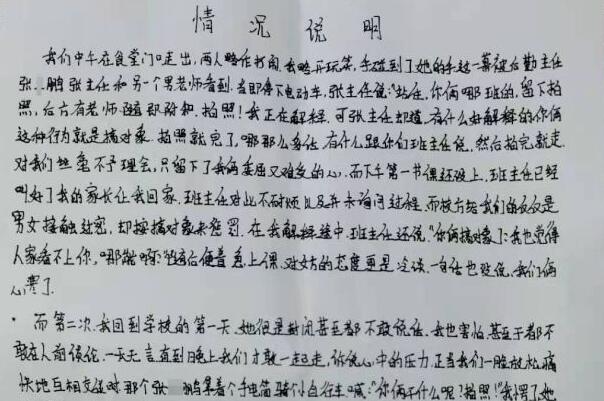 情况说明
我们中午在食堂门口走出,两人略作打闹,我略开玩笑,手碰到了她的手这一幕被后勤主任
张.鹏 张主任和另一个男老师看到.当即停下电动车,张主任说:"站住,你俩哪班的,留下拍
照,后方有老师随即附和,拍照!我正在解释,可张主任却道,有什么好解释的你俩
这种行为就是搞对象.拍照就完了,哪那么多话,有什么跟你们班主任说,然后拍完就走.
对我们丝毫不予理会,只留下了我俩委屈又难受的心,而下午第一节课还没上,班主任已经
叫好了我的家长让我回家,班主任对此不耐烦以及并未询问过程,而校方给我们的仅仅是
男女接触过密,却按搞对象来惩罚.在我解释途中,班主任还说:"你俩搞对象?我也觉得
人家看不上你,哪能啊"随后便着急上课,对女方的态度更是冷淡,一句话也没说,我们俩
心寒了.
·而第二次.我回到学校的第一天,她很是封闭甚至都不敢说话,我也害怕,甚至于都不
敢在人前谈论.一天无言直到晚上我们才敢一起走,诉说心中的压力,正当我们一脸放松,痛
快地互相交谈时,那个张 鹏拿着个手电筒骑个小自行车喊:"你俩干什么呢!拍照!"我愣了她